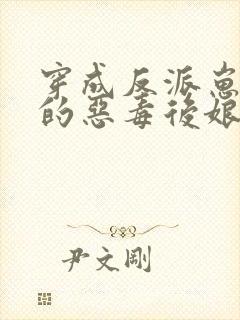 穿成反派崽
的惡毒後娘
尹文剛